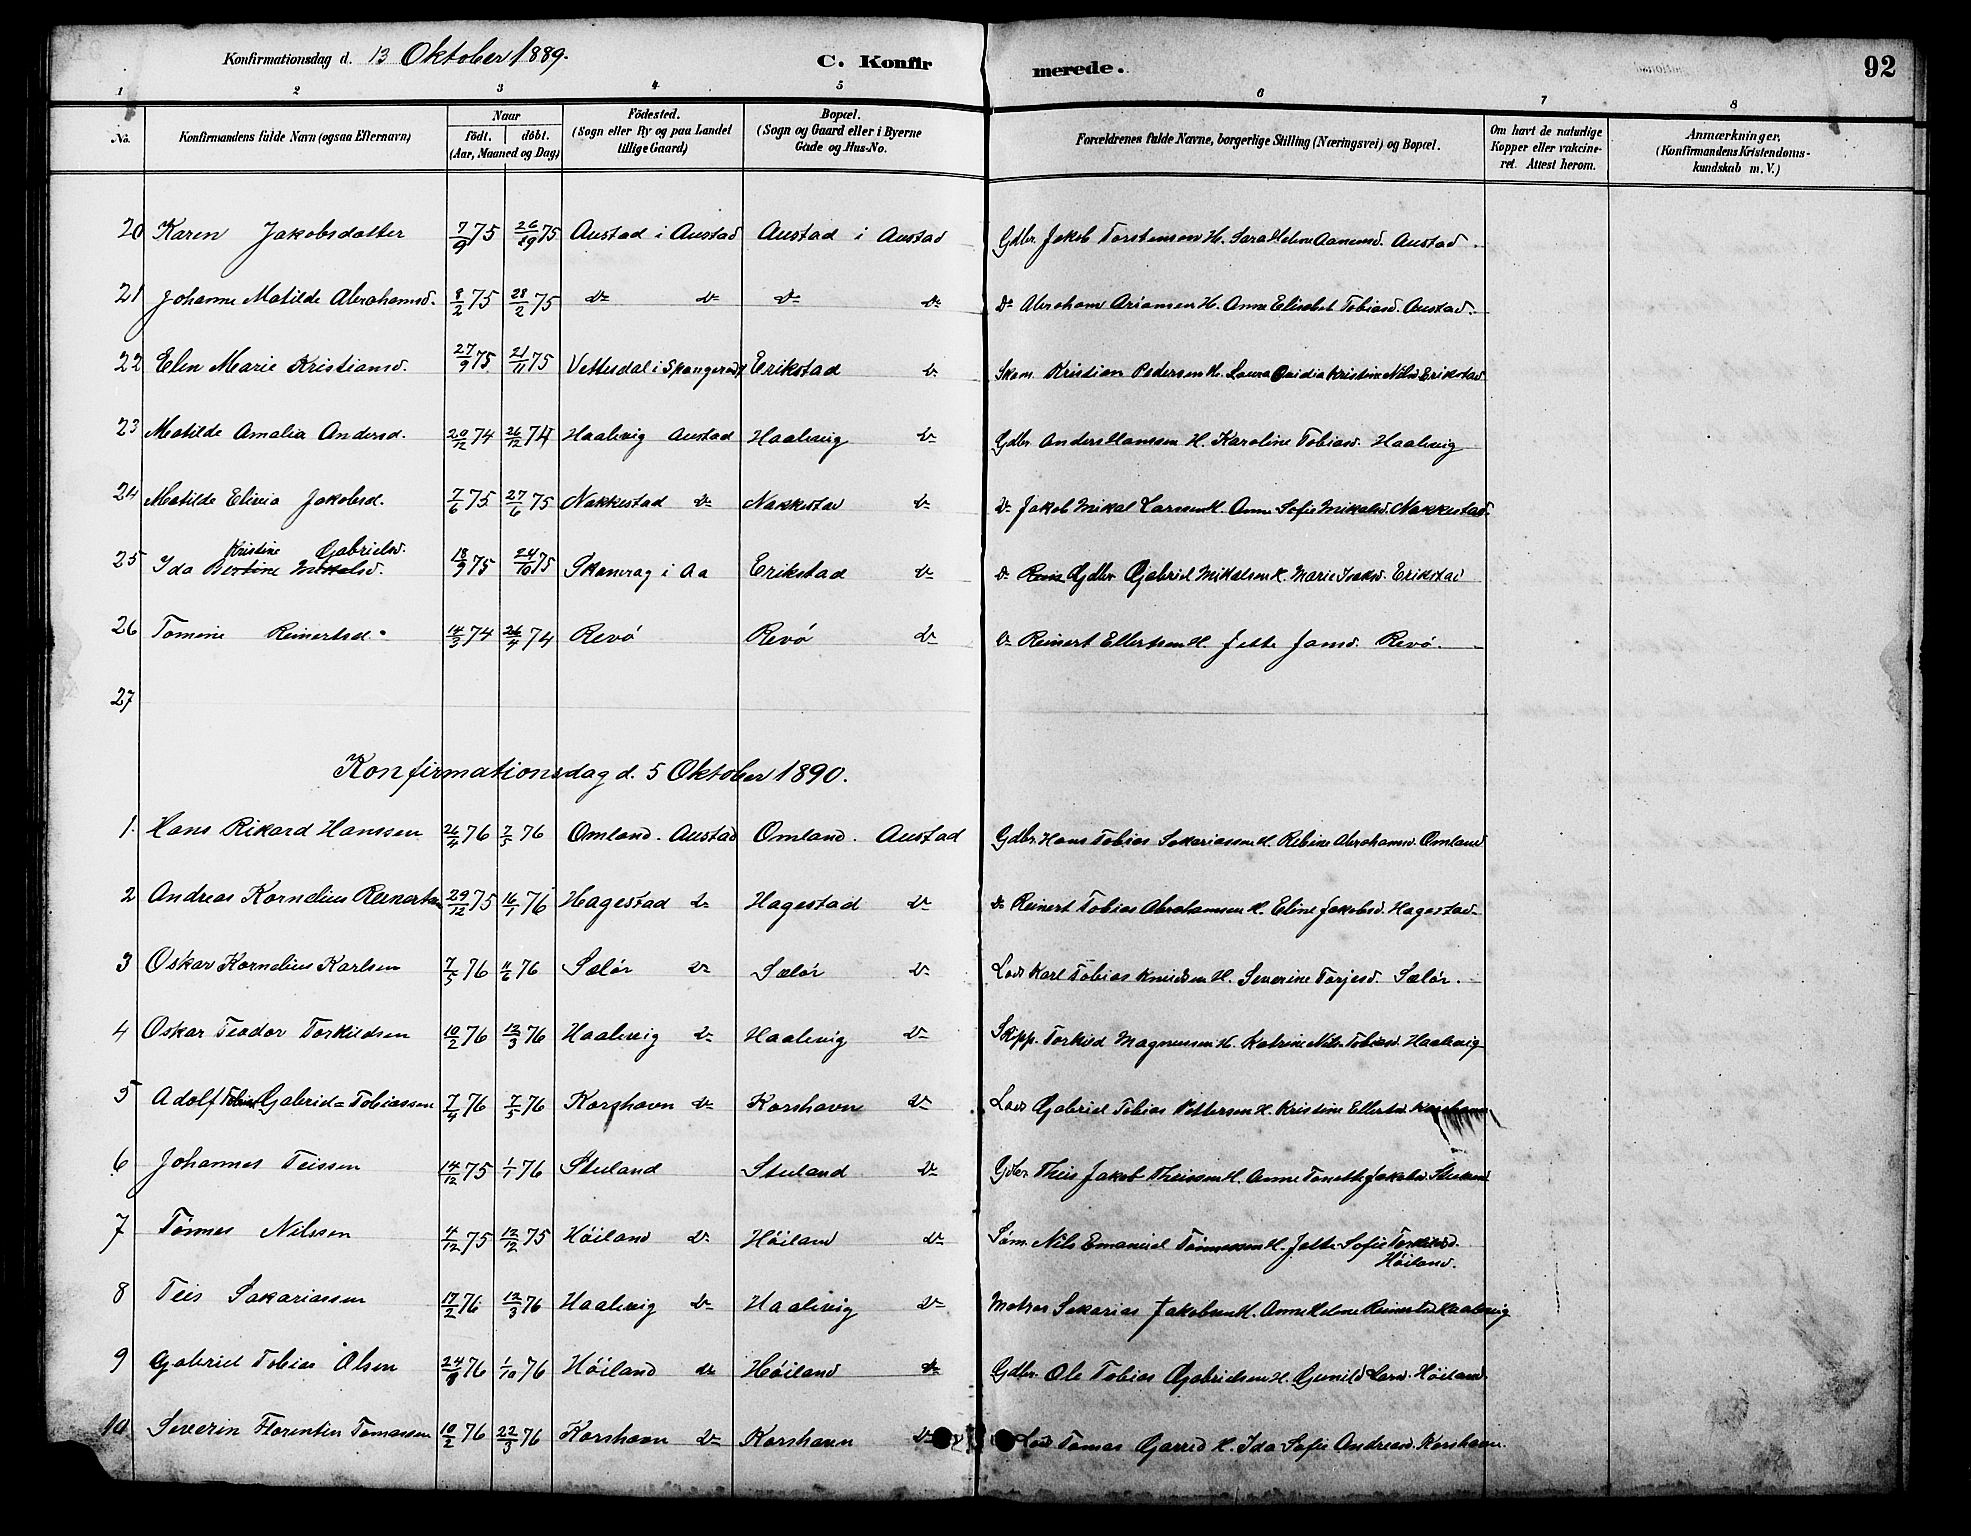 Konfirmationsdag d. 13 Oktober 1889. C. Konfir merede. 92
1 2 3 4 5 6 7 8
No. Konfirmandens fulde Navn (ogsaa Efternavn) Naar födt. döbt. (Aar, Maaned og Dag) Födested. (Sogn eller By og paa Landet tillige Gaard) Bopæl. (Sogn og Gaard eller i Byerne Gade og Hus-No. Forældrenes fulde Navne, borgerlige Stilling (Næringsvei) og Bopæl. Om havt de naturlige Kopper eller vakcineret. Attest herom. Anmærkninger. (Konfirmandens Kristendomskundskab m. V.)
20 Karen Jakobsdatter 7/9 75 26/9 75 Austad i Austad Austad i Austad Gdbr. Jakob Torstensen H. Sara Helene Aanensd. Austad
21 Johanne Matilde Abrahamsd. 8/2 75 28/2 75 do do do do do Abraham Arianson H. Anne Elisabet Tobiasd. Austad.
22 Elen Marie Kristiansd. 27/9 75 21/11 75 Vettesdal i Spangereid Erikstad do Skom. Kristian Pedersen H. Laura Kristine Nilsd Erikstad
23 Matilde Amalia Andersd. 20/12 74 26/12 74 Haalevig Austad Haalevig do Gdbr Anders Hanssen H. Karoline Tobiasd. Haalevig
24 Matilde Elivia Jakobsd. 7/6 75 27/6 75 Nakkestad do Nakkestad do do Jakob Mikal Larssen H. Anne Sofie Mikalsd. Nakkestad.
25 Ida Bertine Mikalsd. Kristine Gabrielsd. 18/9 75 24/10 75 Skamrag i Aa Erikstad do do Gdbr Gabriel Mikalsen H. Marie Isaksd. Erikstad
26 Tomine Reinertsd. 14/3 74 26/4 74 Revö Revö do do Reinert Ellertsen H. Jette Jansd. Revö.
27
Konfirmationsdag d. 5 Oktober 1890.
1. Hans Rikard Hanssen 26/4 76 7/5 76 Omland. Austad Omland. Austad Gdbr. Hans Tobias Sakariassen H. Rebine Abrahamsd. Omland
2 Andreas Kornelius Reinertsen 29/12 75 16/1 76 Hagestad do Hagestad do do Reinert Tobias Abrahamsen H. Eline Jakobsd. Hagestad
3 Oskar Kornelius Karlsen 7/5 76 11/6 76 Sælör do Sælör do Lods Karl Tobias Knudsen H. Severine Torjesd. Sælör.
4 Oskar Teodor Torkildsen 10/2 76 12/3 76 Haalevig do Haalevig do Skpp. Torkild Magnussen H. Katrine Tobiasd. Haalevig
5 Adolf Gabriel Tobiassen 7/4 76 7/5 76 Korshavn do Korshavn do Lods Gabriel Tobias Pettersen H. Kristine Ellertsd Korshavn
6 Johannes Teissen 14/12 75 1/1 76 Stuland Stuland do Gdbr. Theis Jakob Theissen H. Anne Tonette Jakobsd. Stuland
7 Tönnes Nilssen 4/12 75 12/12 75 Höiland do Höiland do Söm. Nils Emanuel Tönnessen H. Jette Sofie Torkildsd. Höiland.
8 Teis Sakariassen 17/2 76 12/3 76 Haalevig do Haalevig do Matros Sakarias Jakobsen H. Anne Helene Reinertsd Haalevig
9 Gabriel Tobias Olsen 24/8 76 1/10 76 Höiland do Höiland do Gdbr. Ole Tobias Gabrielsen H. Gunild Larsd. Höiland.
10 Severin Florentin Tomassen 10/2 76 22/3 76 Korshavn do Korshavn do Lods Tomas Gjerred H. Ida Sofie Andreasd. Korshavn.